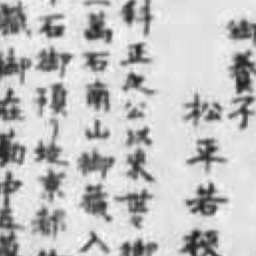 御養子
松平若狭
科正之公以来世々御
一万石南山御蔵入
石御預り地京都
職御在勤中五万